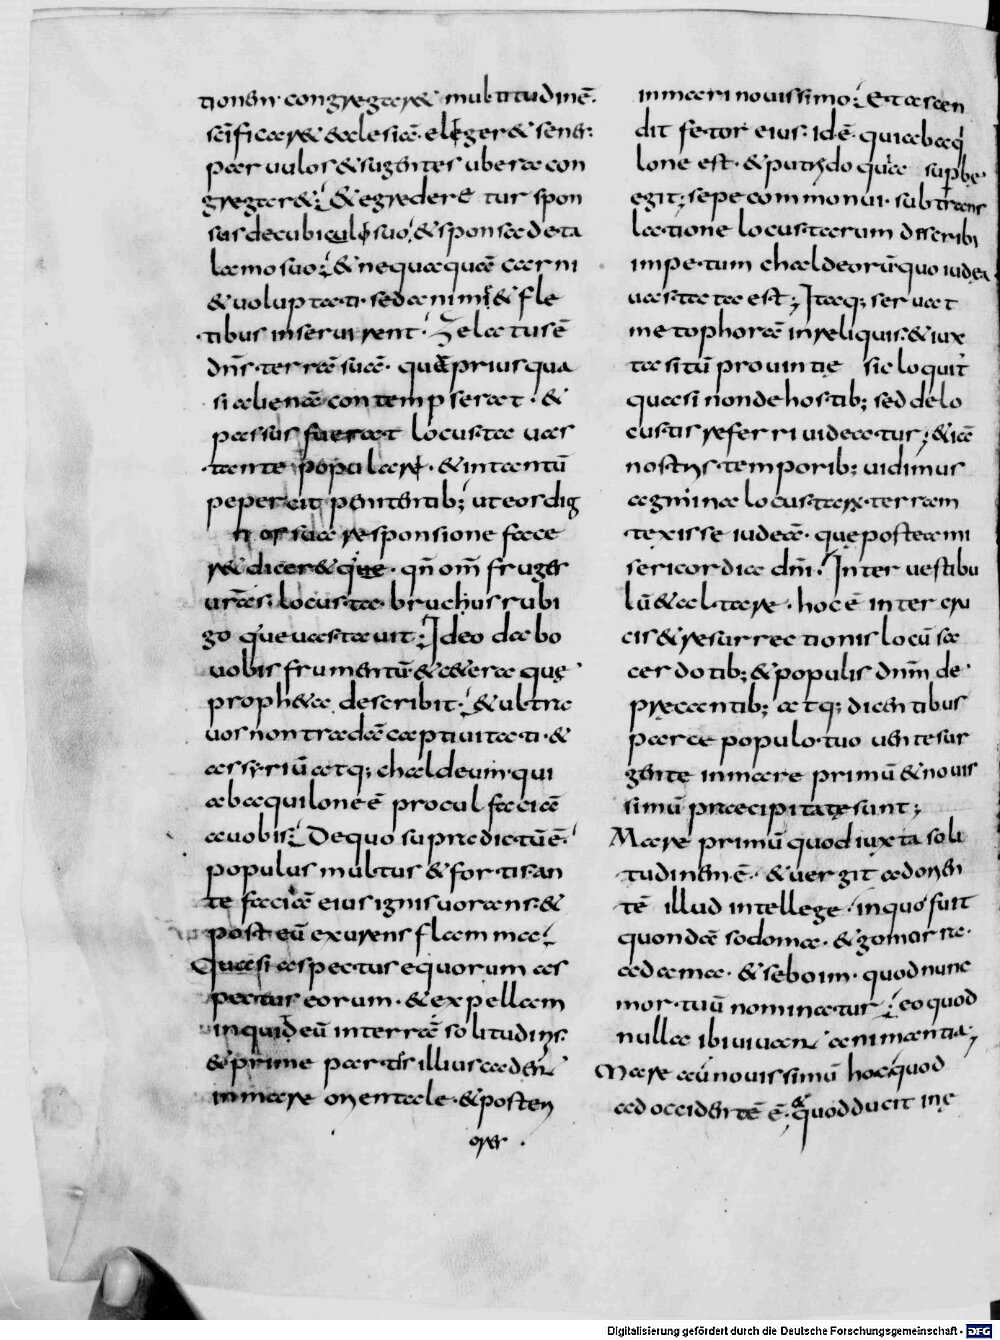 tionem congregare & multitudinē.
sc̄ificare & ecclesiā. eliger& senes.
paruulos & sugentes ubera con
gregar&. & egrederetur spon
sus de cubiculo suo. & sponsa de ta
lamo suo. & nequaquā carni
& uoluptati. sed animę & fle
tibus inseruirent. Zelatus ē
dn̄s terrā suā. quā prius qua
si alienā contempserat. &
passus fuerat locusta uas
tante populare. & in tantū
pepercit penitentib; ut eos dig
nos sua responsione face
r& dicer& que. qn̄ om̄ fruges
urās. locusta bruchus rubi
go que uastauit. Ideo dabo
uobis frumentū & c&era que
proph&a describit. & ultra
uos non tradā captiuitati. &
assyriū atq; chaldeum qui
ab aquilone ē procul faciā
a uobis. De quo supra dictū ē.
populus multus & fortis. an
te faciā eius ignis uorans. &
post eū exurens flamma.
Quasi aspectus equorum as
pectus eorum. & expellam
inquid eū in terrā solitudinis.
& prime partis illius ad erit
in mare orientale. & posteri
ores
in mari nouissimo. Et ascen
dit fetor eius. idē qui ab aq
lone est. & putrydo quia supbe
egit; sepe commonui. sub trans
latione locustarum discribi
impetum chaldeorū quo iudea
uastata est; Itaq; seruat
metophoram in reliquis. & iux
ta sitū prouintie sic loquit
quasi non de hostib; sed de lo
custis referri uideatur; & iā
nostris temporib; uidimus
agmina locustarū terram
texisse iudeā. que postea mi
sericordia dn̄i. Inter uestibu
lū & altare. hoc ē inter cru
cis & resurrectionis locū sa
cerdotib; & populis dnm̄ de
precantib; atq; dicentibus
parce populo tuo uente sur
gente in mare primū & nouis
simū praecipitate sunt;
Mare primū quod iuxta soli
tudinem ē. & uergit ad orien
tē illud intellege. in quo fuit
quondā sodoma. & gomorra.
adama. & seboim. quod nunc
mortuū nominatur. eo quod
nulla ibi uiuant animantia;
Mare aū nouissimū hoc quod
ad occidentē ē. quod ducit in e